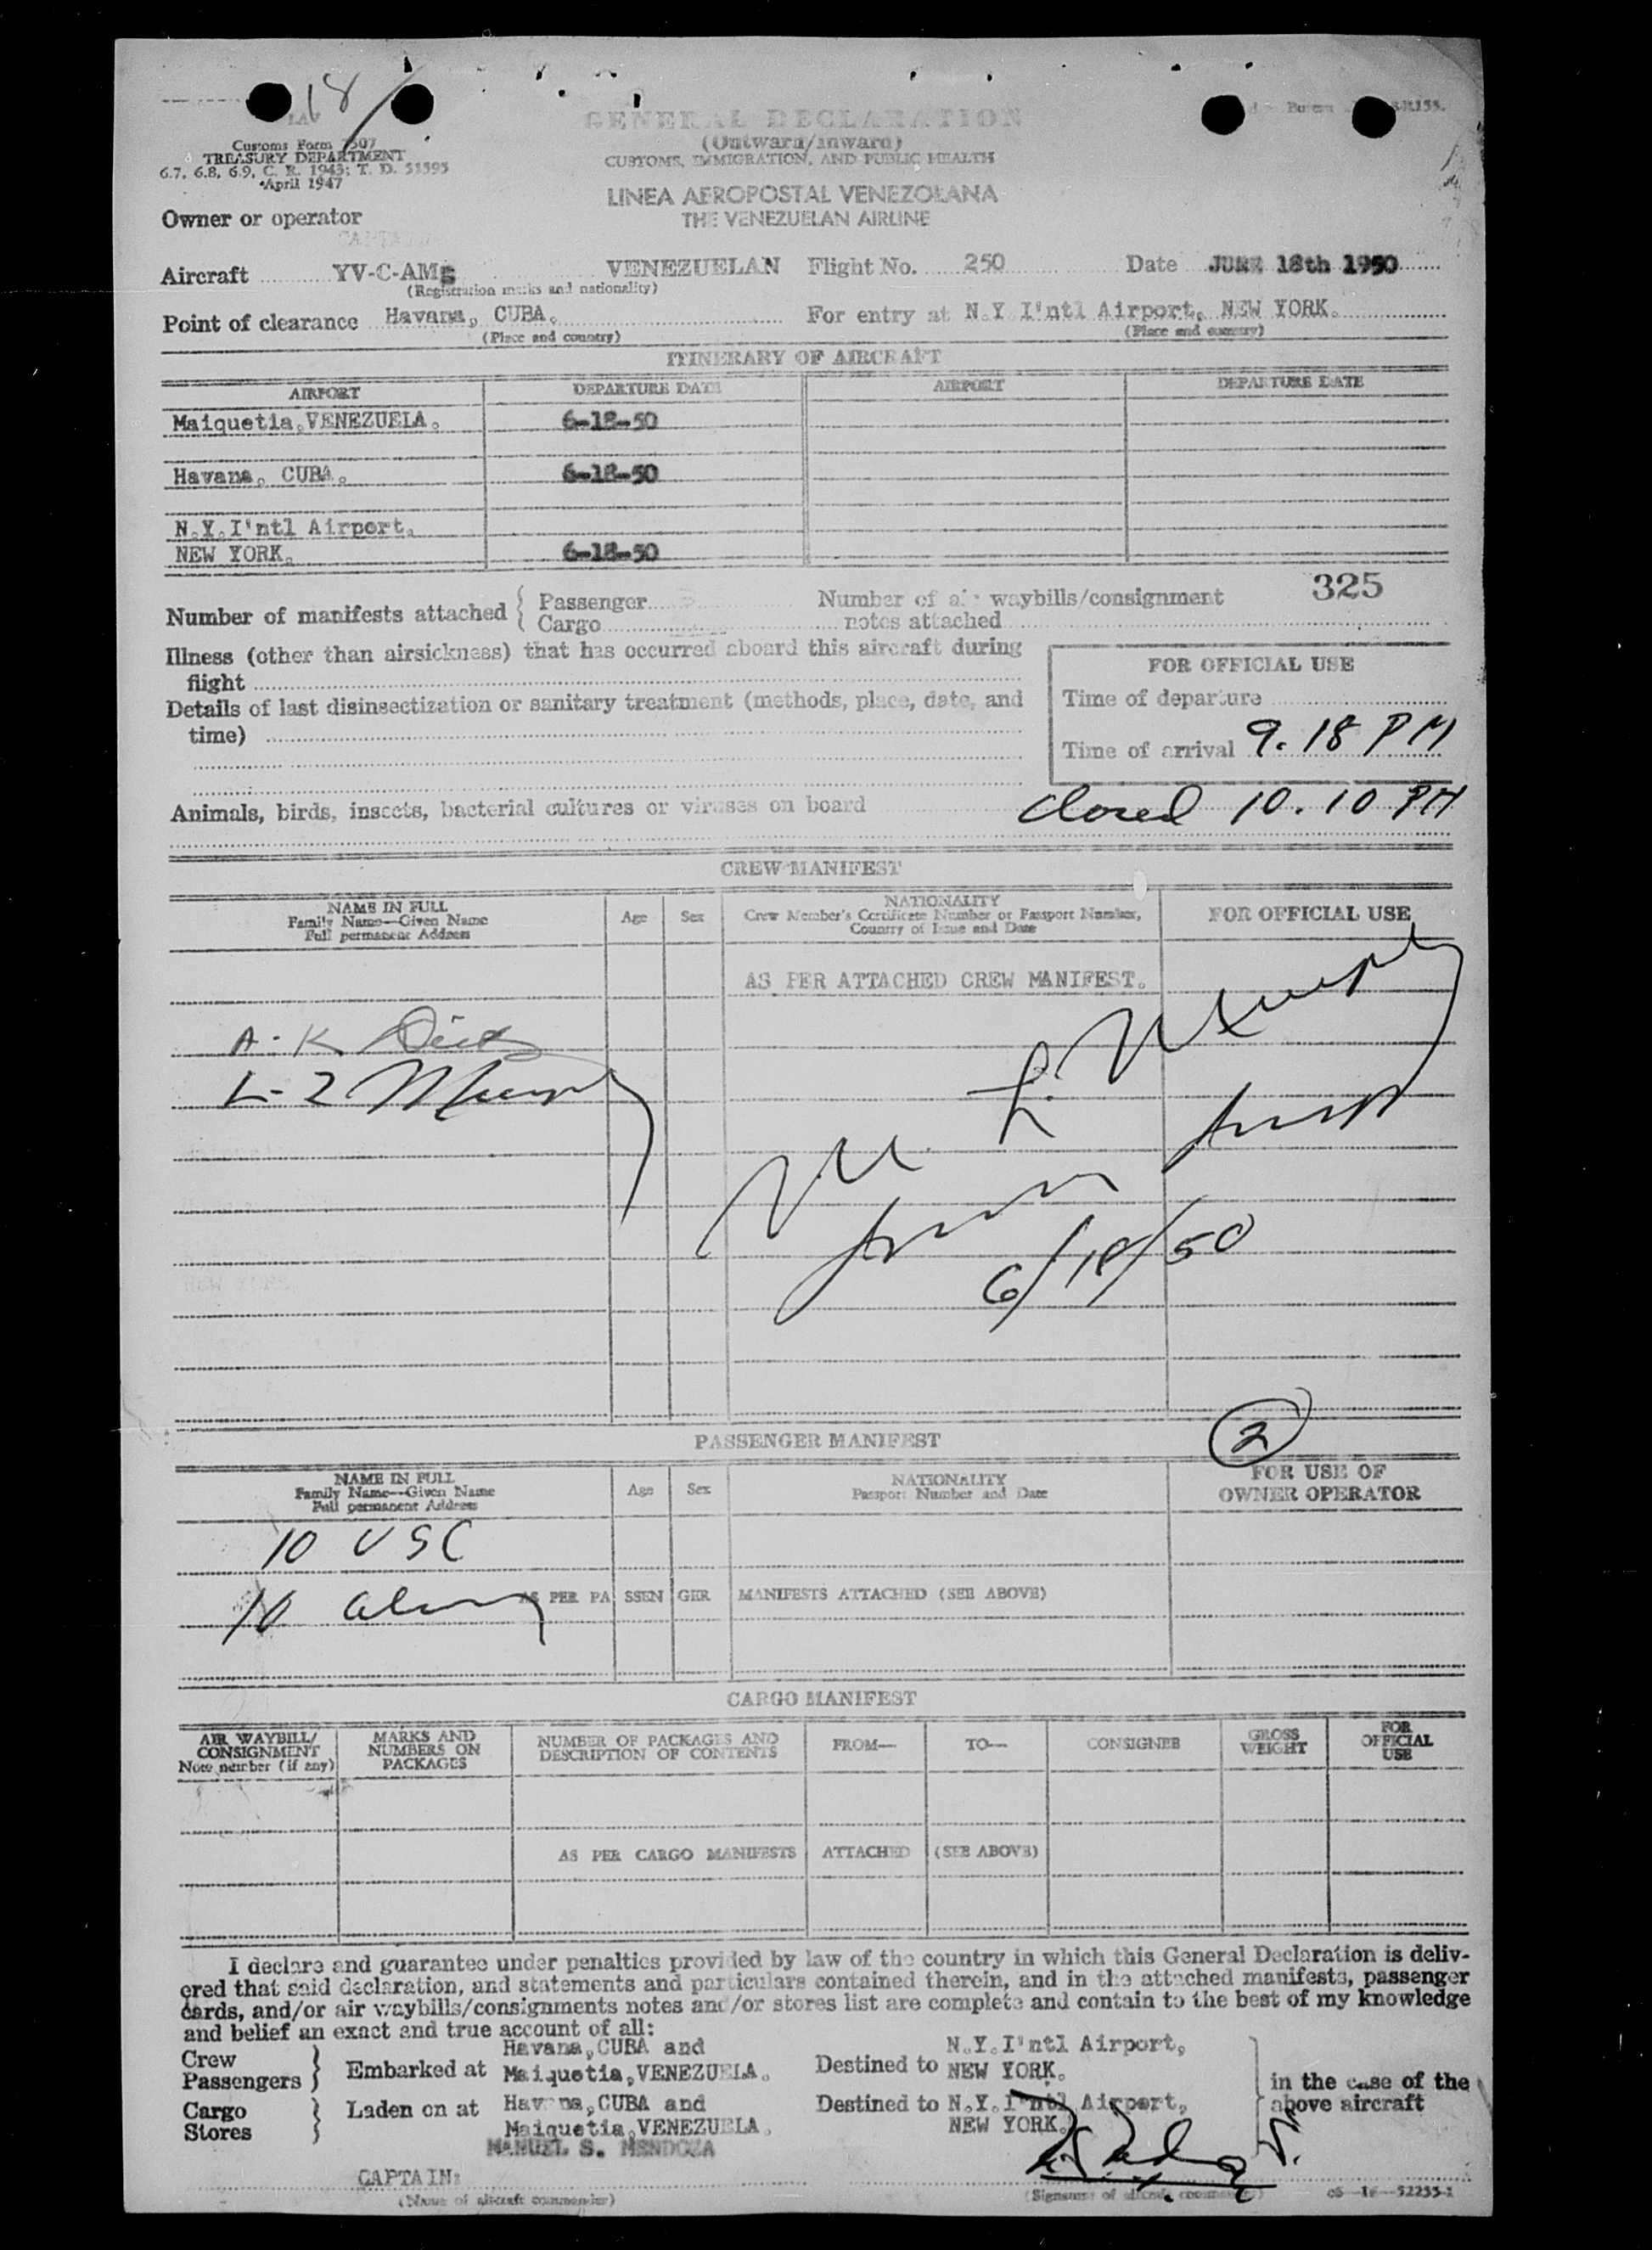 18
LAV
Customs Form 7507
TREASURY DEPARTMENT
6.7, 6.8, 6.9, C. R. 1943; T. D. 51595
April 1947
GENERAL DECLARATION
(Outward/Inward)
CUSTOMS, IMMIGRATION, AND PUBLIC HEALTH
LINEA AEROPOSTAL VENEZOLANA
THE VENEZUELAN AIRLINE
Owner or operator
Aircraft YV-C-AME VENEZUELAN Flight No. 250 Date JUNE 18th 1950
(Registration marks and nationality)
Point of clearance Havana, CUBA. For entry at N.Y I'ntl Airport, NEW YORK.
(Place and country) (Place and country)
ITINERARY OF AIRCRAFT
AIRPORT DEPARTURE DATE AIRPORT DEPARTURE DATE
Maiquetia,VENEZUELA. 6-18-50
Havana, CUBA. 6-18-50
N.Y.I'ntl Airport.
NEW YORK. 6-18-50
325
Number of manifests attached { Passenger Number of air waybills/consignment
Cargo notes attached
Illness (other than airsickness) that has occurred aboard this aircraft during
flight
Details of last disinsectization or sanitary treatment (methods, place, date, and
time)
FOR OFFICIAL USE
Time of departure
Time of arrival 9.18 PM
Closed 10.10 PM
Animals, birds, insects, bacterial cultures or viruses on board
CREW MANIFEST
NAME IN FULL
Family Name—Given Name
Full permanent Address
Age Sex
NATIONALITY
Crew Member's Certificate Number or Passport Number,
Country of Issue and Date
FOR OFFICIAL USE
AS PER ATTACHED CREW MANIFEST.
A. K.
L-2 Murphy
L. Murphy
6/18/50
2
PASSENGER MANIFEST
NAME IN FULL
Family Name—Given Name
Full permanent Address
Age Sex
NATIONALITY
Passport Number and Date
FOR USE OF
OWNER OPERATOR
10 USC
10 aliens
AS PER PA SSEN GER MANIFESTS ATTACHED (SEE ABOVE)
CARGO MANIFEST
AIR WAYBILL/
CONSIGNMENT
Note number (if any)
MARKS AND
NUMBERS ON
PACKAGES
NUMBER OF PACKAGES AND
DESCRIPTION OF CONTENTS
FROM— TO— CONSIGNEE
GROSS
WEIGHT
FOR
OFFICIAL
USE
AS PER CARGO MANIFESTS ATTACHED (SEE ABOVE)
I declare and guarantee under penalties provided by law of the country in which this General Declaration is deliv-
ered that said declaration, and statements and particulars contained therein, and in the attached manifests, passenger
cards, and/or air waybills/consignments notes and/or stores list are complete and contain to the best of my knowledge
and belief an exact and true account of all:
Crew
Passengers } Embarked at Havana,CUBA and
Maiquetia,VENEZUELA. Destined to N.Y.I'ntl Airport,
NEW YORK.
Cargo
Stores } Laden on at Havana,CUBA and
Maiquetia,VENEZUELA. Destined to N.Y.I'ntl Airport,
NEW YORK.
in the case of the
above aircraft
MANUEL S. MENDOZA
CAPTAIN:
(Name of aircraft commander) (Signature of aircraft commander)
c6—16—52255-1